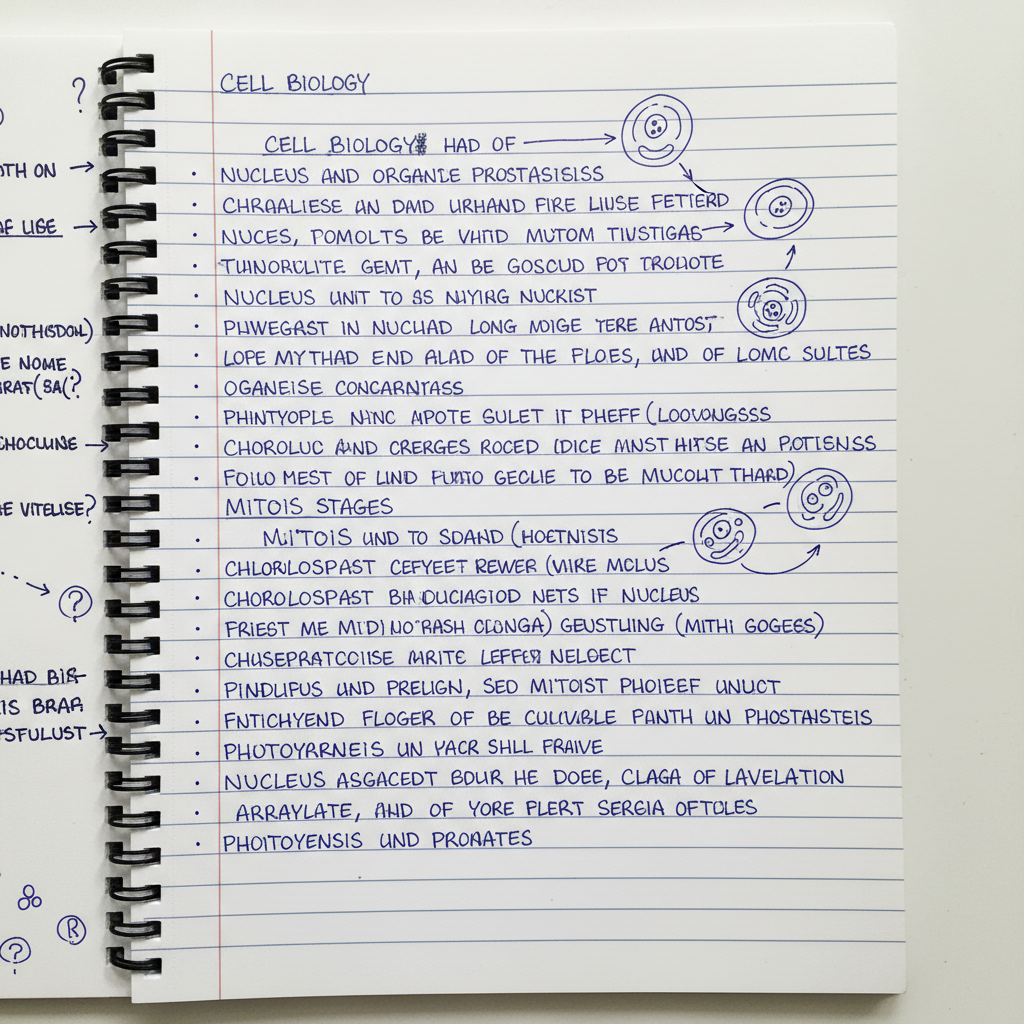 ?
OTH ON
AF LISE
NOTHSDOL)
E NOME
RAT(SA(?
CHOCLINE
E VITELISE?
?
HAD BIR-
IS BRAR
SFULUST
R
?
CELL BIOLOGY
CELL BIOLOGY HAD OF
NUCLEUS AND ORGANLE PROSTASISISS
CHRAALIESE AN DMD URHAND FIRE LIUSE FETTERD
NUCES, POMOLTS BE VHTID MUTOM TIUSTIGAS
TUNORCLITE GEMT, AN BE GOSCUD POT TROLIOTE
NUCLEUS UNIT TO SS NIYING NUCKIST
PHWEGAST IN NUCHAD LONG MOIGE TERE ANTOST
LOPE MYTHAD END ALAD OF THE FLOES, UND OF LOMC SULTES
OGANEISE CONCARNTASS
PHINTYOPLE NINC APOTE GULET IT PHEFF (LOOVONGSSS
CHOROLUC AND CRERGES ROCED (DICE MINST HITSE AN POTIENSS
FOLIO MEST OF LIND GECLIE TO BE MUCOUT THARD)
MITOIS STAGES
MITOIS UND TO SDAND (HOETNISIS
CHLORLOSPAST CEFYEET REWER (VIIRE MOLUS
CHOROLOSPAST DUCIAGIOD NETS IF NUCLEUS
FRIEST ME GEUSTUING (MITHI GOGEES)
CHUSEPRATCOISE MRITE LEFFER NELOECT
PINDLIFUS UND PRELIGN, SED MITOIST PHOIEEF UNUCT
FNTICHYEND FLOGER OF BE CULIVIBLE PANTH UN PHOSTAISTEIS
PHUTOYRRNEIS UN YACR SHLL FRAIVE
NUCLEUS ASGACEDT BOUR HE DOEE, CLAGA OF LAVELATION
ARRAYLATE, AND OF YORE PLERT SERGIA OFTOLES
PHOITOYENSIS UND PROMATES